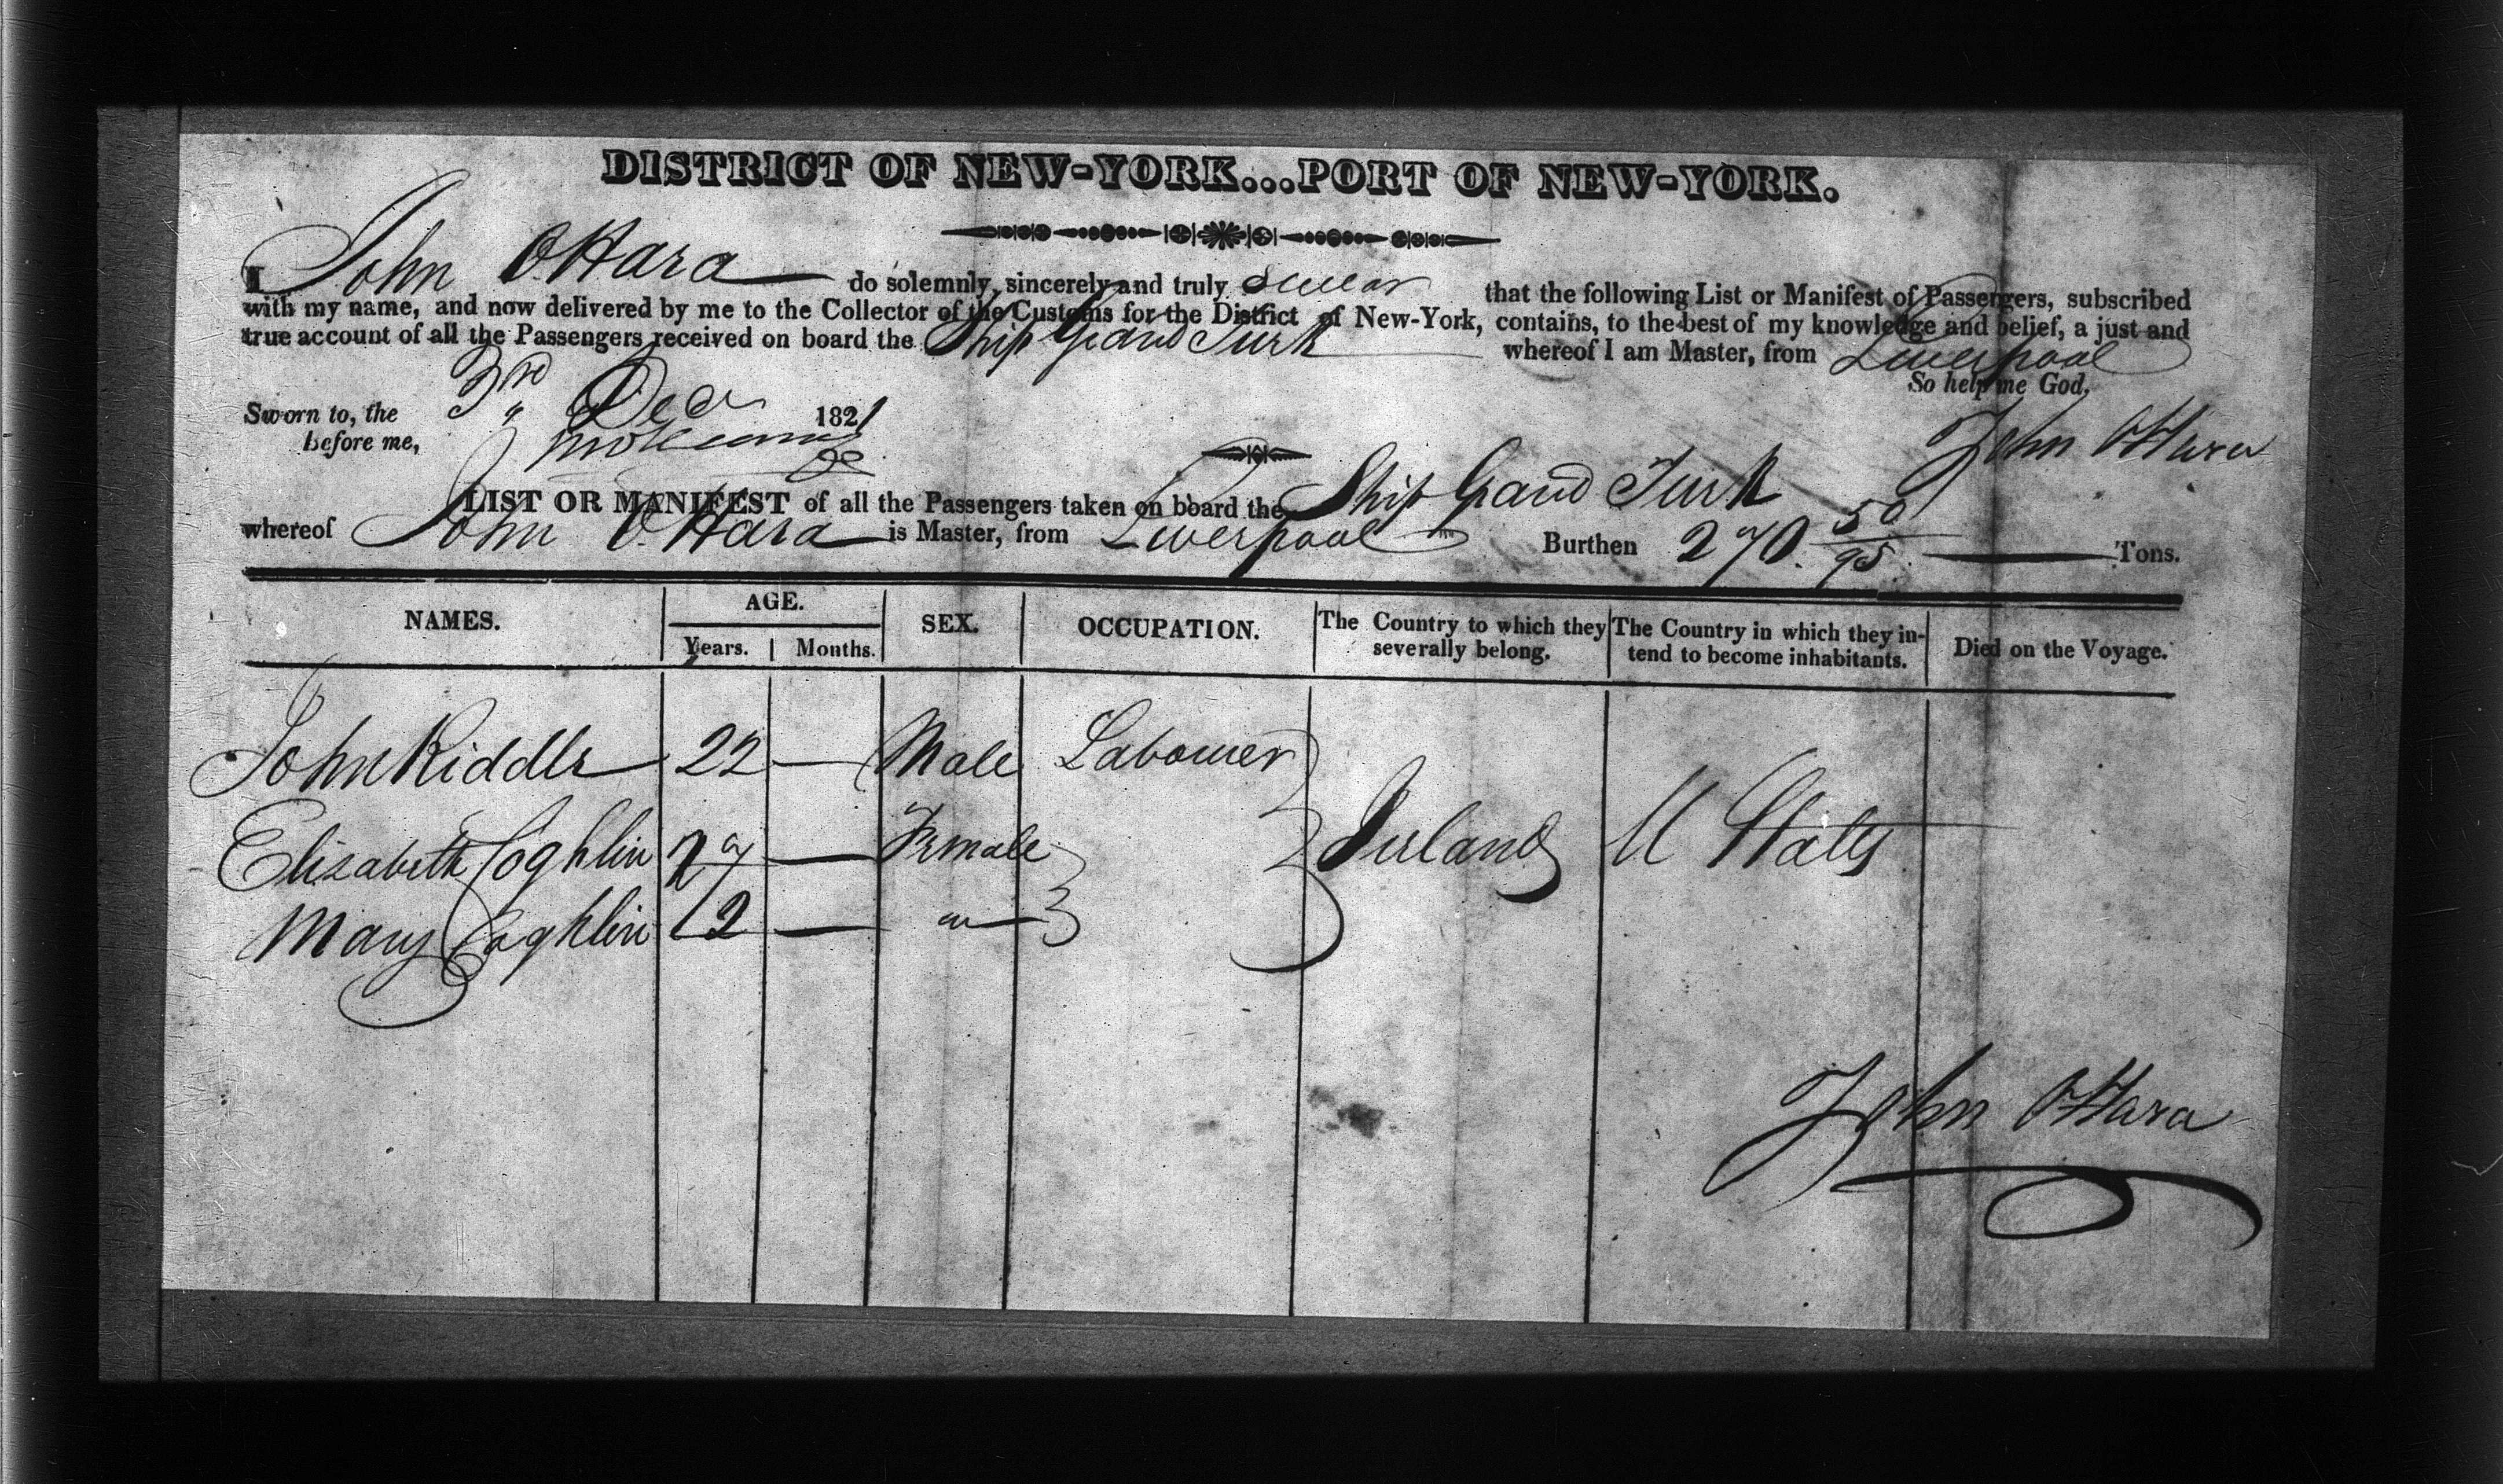 DISTRICT OF NEW-YORK...PORT OF NEW-YORK.
I John OHara do solemnly, sincerely and truly swear that the following List or Manifest of Passengers, subscribed
with my name, and now delivered by me to the Collector of the Customs for the District of New-York, contains, to the best of my knowledge and belief, a just and
true account of all the Passengers received on board the Ship Grand Turk whereof I am Master, from Liverpool
So help me God.
Sworn to, the 3rd Decr 1821
before me,
John OHara
LIST OR MANIFEST of all the Passengers taken on board the Ship Grand Turk
whereof John O.Hara is Master, from Liverpool Burthen 270. 50/95 Tons.
NAMES. AGE. SEX. OCCUPATION. The Country to which they severally belong. The Country in which they intend to become inhabitants. Died on the Voyage.
Years. Months.
John Riddle 22 — Male Labourer
Elizabeth Coghlin 27 — Female Ireland U States
Mary Coghlin 12 — "
John OHara